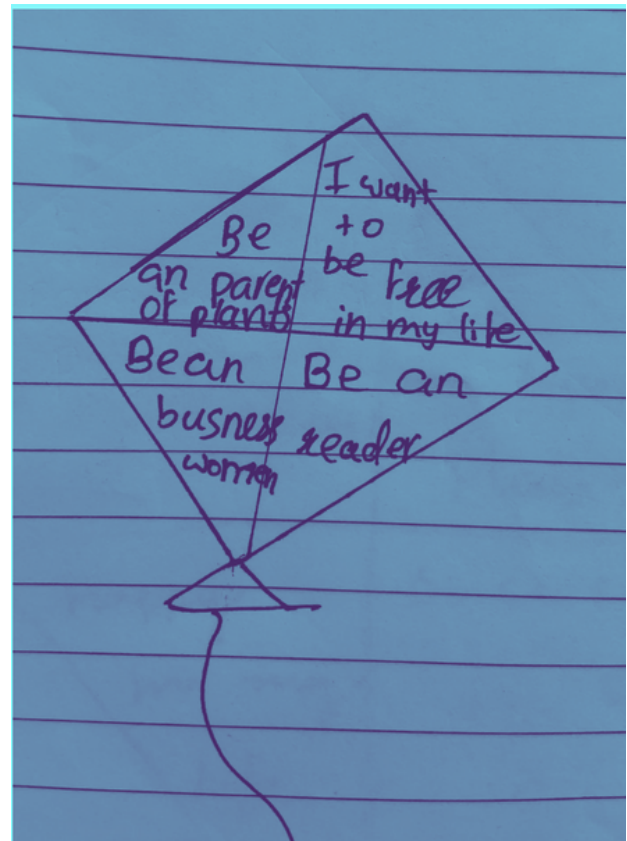 Be
an parent
of plants
I want
to
be free
in my life
Bean
busness
women
Be an
reader